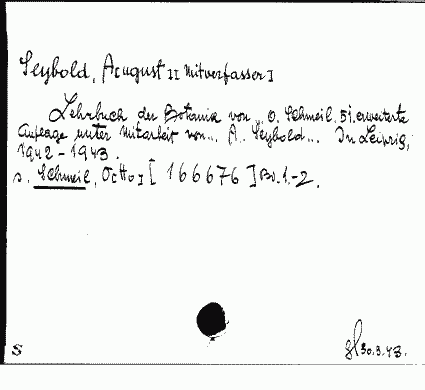 Seybold, August II Mitverfasser I
Lehrbuch der Botanik von O. Schmeil. 51. erweiterte
Auflage unter Mitarbeit von... A. Seybold... In Leipzig,
1942-1943.
s. Schmeil, Otto I [166676] Bd. 1.-2.
S
30.3.43.